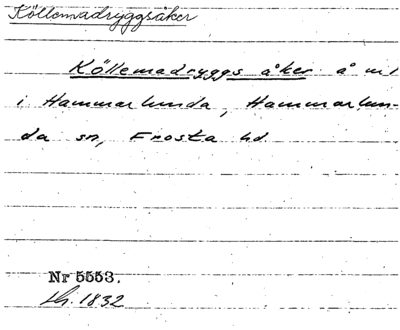 Köllemadryggsåker
Köllemadryggs åker å nr 1
i Hammarlunda, Hammarlun-
da sn, Frosta hd.
Nr 5553.
1832